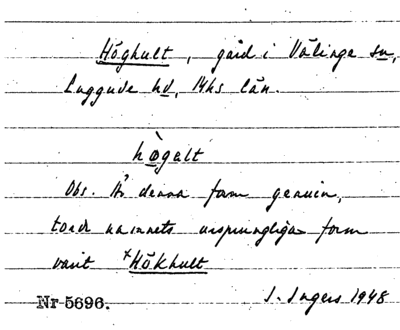 Höghult, gård i Välinge sn,
Luggude hd, Mhs län.
hògalt
Obs. Är denna form genuin,
torde namnets ursprungliga form
varit ˣHökhult
Nr 5696. I. Ingers 1948